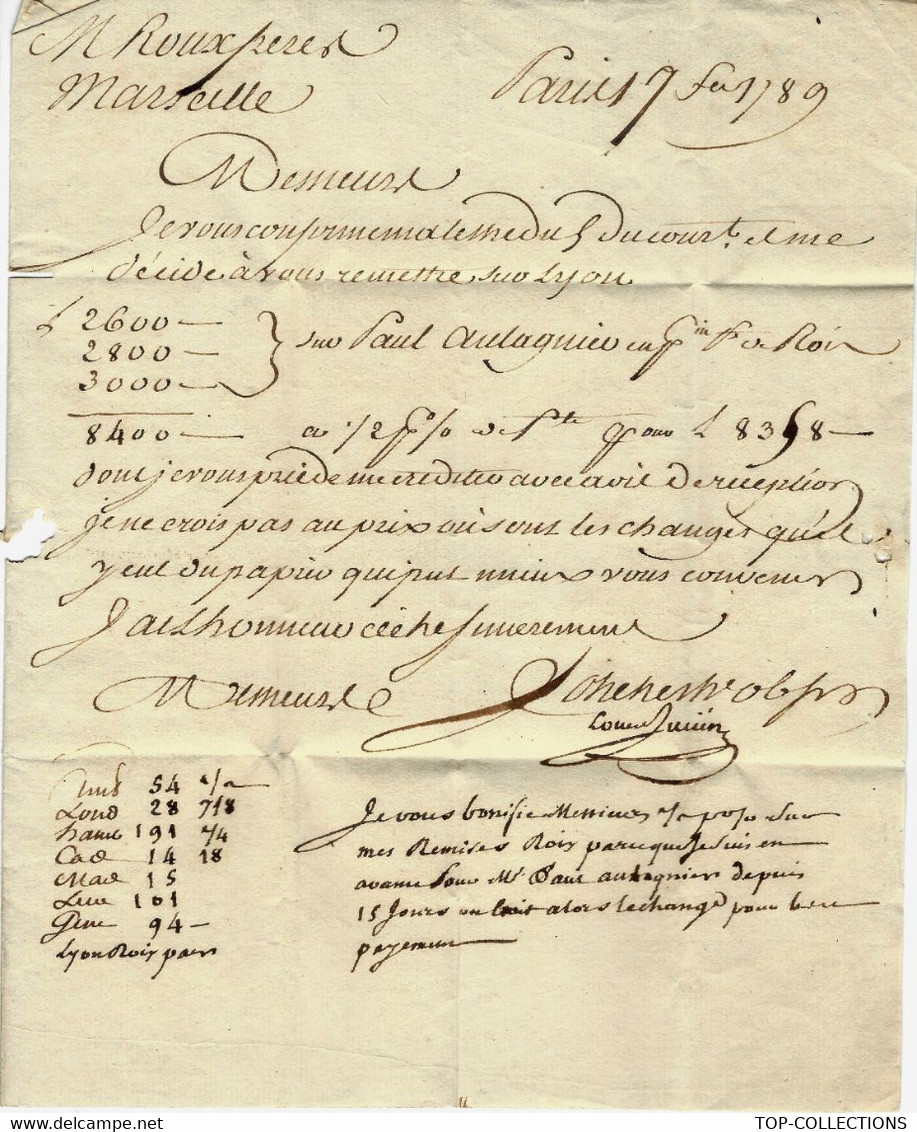 M Roux freres
Marseille
Paris 17 fev 1789
Messieurs
Je vous confirme ma lettre du 5 du cour.t et me
décide à vous remettre sur Lyon
L 2600 —
2800 —
3000 —
sur Paul Aulagnier en Rois
8400 — a 1/2 p% de p.te pour L 8358 —
dont je vous prie de me crediter avec avis de reception
je ne crois pas au prix où sont les changes qu'il
y eut du papier qui put mieux vous convenir
J'ai l'honneur d'être sincerement
Messieurs
Louis Julien
Amst 54
Lond 28 7/8
hamb 191 1/4
Cad 14 18
Mad 15
Livo 101
Gene 94 —
Lyon Rois pair
Je vous bonifie Messieurs p% sur
mes Remises Rois parceque Je suis en
avance pour Mr Paul aulagnier depuis
15 Jours alors le change pour
payement
TOP-COLLECTIONS